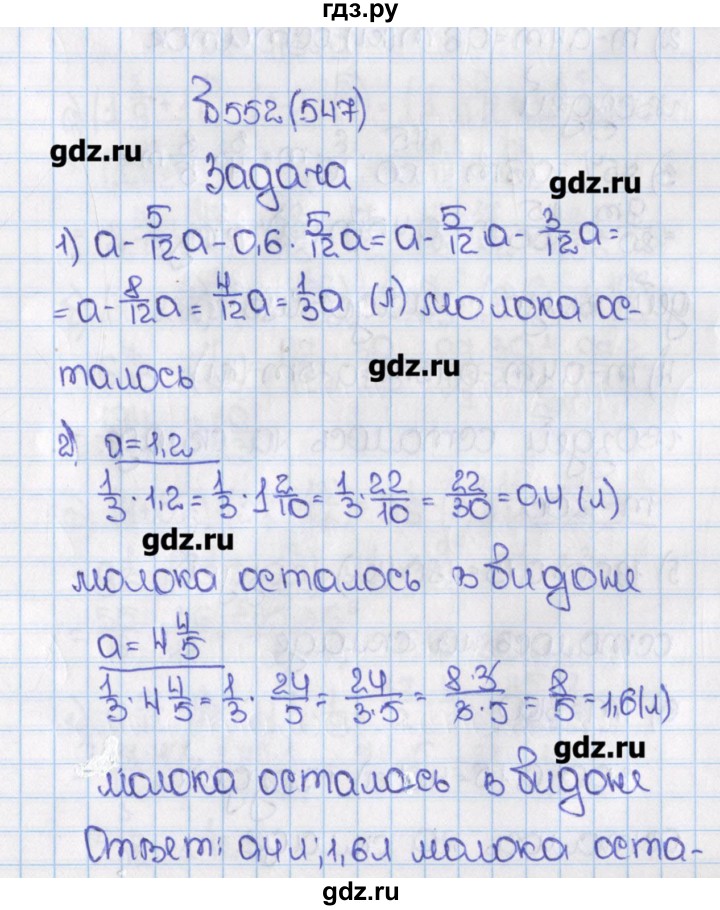 гдз.ру
552 (547)
gdz.ru
Задача
gdz.ru
1) a - 5/12 a - 0,6 · 5/12 a = a - 5/12 a - 3/12 a =
= a - 8/12 a = 4/12 a = 1/3 a (л) молока ос-
талось
gdz.ru
2) a = 1,2
1/3 · 1,2 = 1/3 · 1 2/10 = 1/3 · 22/10 = 22/30 = 0,4 (л)
gdz.ru
молока осталось в бидоне
a = 4 4/5
1/3 · 4 4/5 = 1/3 · 24/5 = 24/3·5 = 8·3/3·5 = 8/5 = 1,6 (л)
gdz.ru
молока осталось в бидоне
Ответ: 0,4 л; 1,6 л молока оста-
gdz.ru